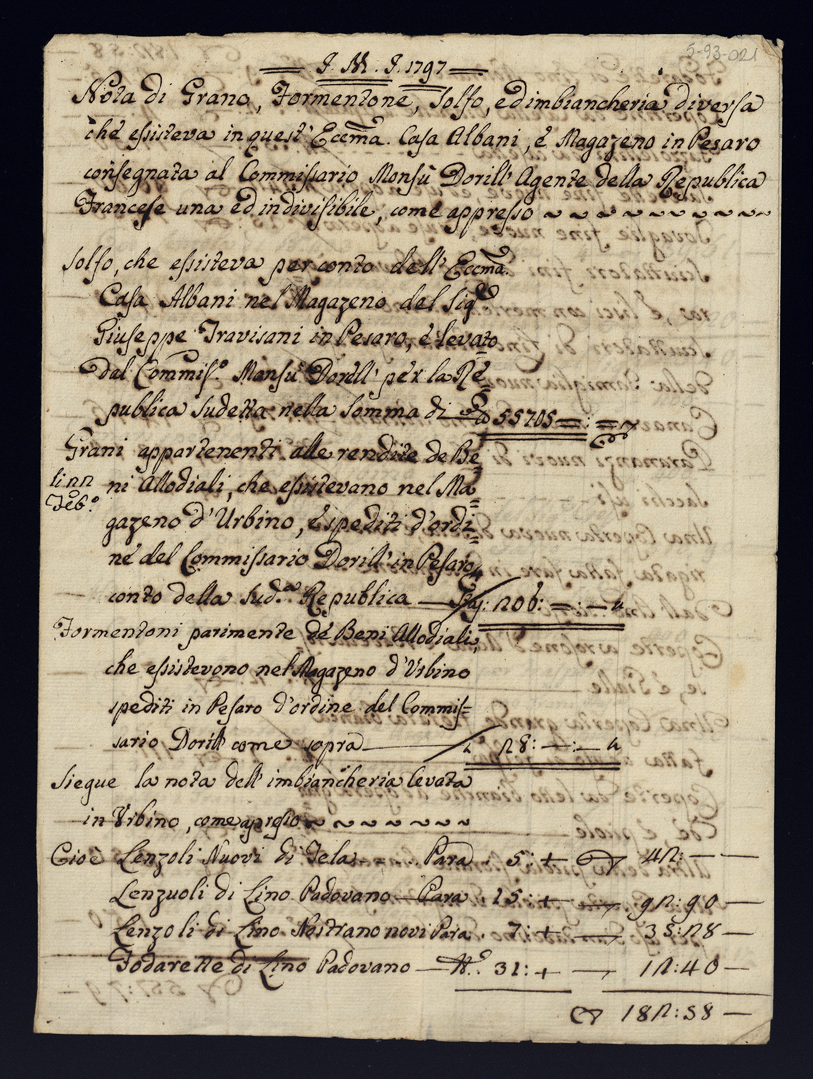 5-93-021
J. M. J. 1797
Nota di Grano, Formentone, Solfo, ed imbiancheria diversa
che essisteva in quest' Eccma. Casa Albani, è Magazeno in Pesaro
consegnata al Commissario Monsù Dorill' Agente della Republica
Francese una ed indivisibile, come appresso
Solfo, che essisteva per conto dell' Eccma.
Casa Albani nel Magazeno del Sigr.
Giuseppe Travisani in Pesaro, è levato
dal Commisso. Monsù Dorill' per la Re=
publica sudetta nella somma di 55705 = : =
Grani appartenenti alle rendite de Be=
ni Allodiali, che essistevano nel Ma=
Febo.
gazeno d'Urbino, è spediti d'ordi=
ne del Commissario Dorill' in Pesaro
conto della Sudа. Republica — 206: = — "
Formentoni parimente de Beni Allodiali,
che essistevono nel Magazeno d'Urbino
spediti in Pesaro d'ordine del Commis=
sario Dorill' come sopra — " 28: — : — "
Siegue la nota dell' imbiancheria levata
in Urbino, come apresso
Cioè Lenzoli Nuovi di Tela Para 5: + 42: — —
Lenzuoli di Lino Padovano — Para 15: + — 92: 90 —
Lenzoli di Lino Nostrano novi Para 7: + — 35: 28 —
Fodarette di Lino Padovano — No. 31: + — 12: 40 —
182: 58 —